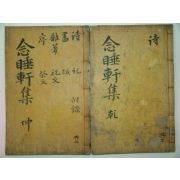 詩
念睡軒集 乾
詩
書
序
雜著
記
跋
祝文
祭文
附錄
念睡軒集 坤